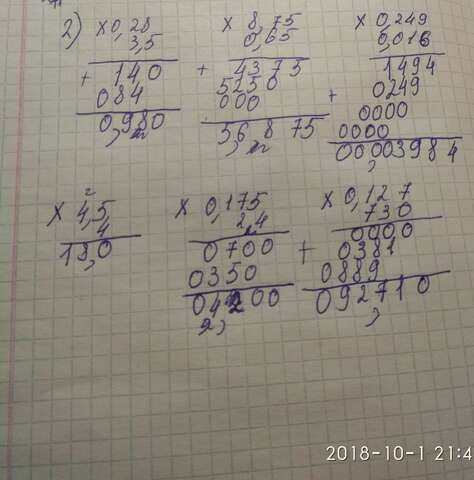 2) × 0,28
3,5
+ 140
084
0,980
× 8,75
0,65
+ 4375
5250
000
5,6875
× 0,249
0,016
1494
+ 0249
0000
0000
0,0003984
2
× 4,5
4
18,0
× 0,175
2,4
0700
0350
× 0,127
730
0000
+ 0381
0889
092,710
2018-10-1 21:4